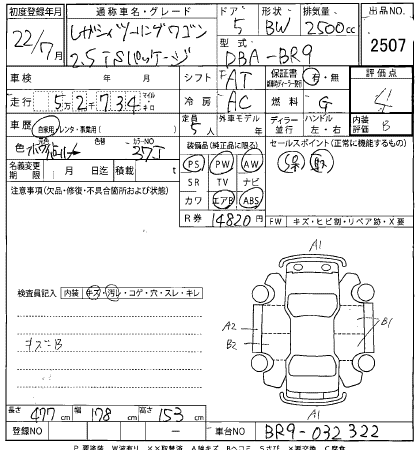 初度登録年月 通称車名・グレード ドア 形状 排気量 出品NO.
22/7月 レガシィツーリングワゴン 5 BW 2500cc 2507
2.5iSパッケージ 型式 DBA-BR9
車検 年 月 シフト FAT 保証書 有・無 評価点
走行 5万2千734 マイル キロ 冷房 AC 燃料 G
車歴 自家用・レンタ・事業用( ) 定員 5人 外車モデル 年 ディーラー 並行 ハンドル 左・右 内装評価 B
色 色替 カラーNO 37J 装備品(純正品に限る) セールスポイント(正常に機能するもの)
名義変更期限 月 日迄 積載 t PS PW AW
注意事項(欠品・修復・不具合箇所および状態) SR TV ナビ
カワ エアB ABS
R券 14820円 FW キズ・ヒビ割・リペア跡・X要
A1
検査員記入 内装 キズ・汚レ・コゲ・穴・スレ・キレ
A2 B1
キズ=B B2
A1
長さ 477cm 幅 178cm 高さ 153cm
登録NO 車台NO BR9-032322